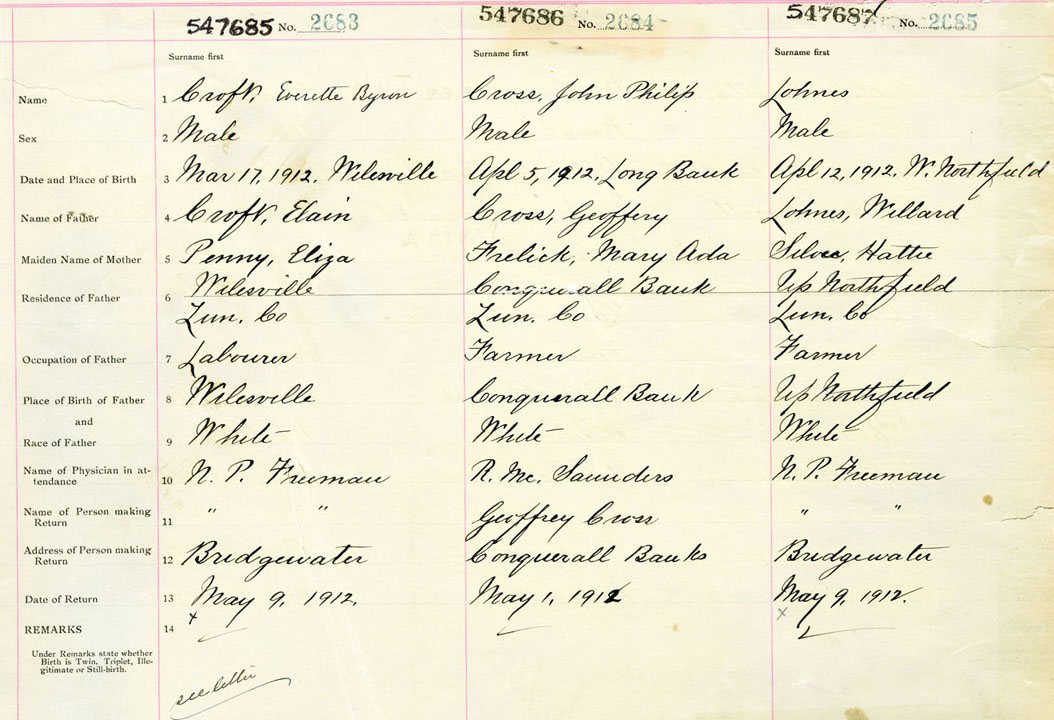 547685 No. 2683 547686 No. 2684 547687 No. 2685
Surname first Surname first Surname first
Name 1 Croft, Everette Byron Cross, John Philip Lohnes
Sex 2 Male Male Male
Date and Place of Birth 3 Mar 17, 1912. Wilesville Apl 5, 1912, Long Bank Apl 12, 1912. W. Northfield
Name of Father 4 Croft, Elain Cross, Geoffery Lohnes, Willard
Maiden Name of Mother 5 Penny, Eliza Frelick, Mary Ada Silver, Hattie
Residence of Father 6 Wilesville Conquerall Bank Up Northfield
Lun. Co Lun. Co Lun. Co
Occupation of Father 7 Labourer Farmer Farmer
Place of Birth of Father 8 Wilesville Conquerall Bank Up Northfield
and
Race of Father 9 White White White
Name of Physician in at-
tendance 10 N. P. Freeman R. Mc. Saunders N. P. Freeman
Name of Person making
Return 11 " " Geoffrey Cross " "
Address of Person making
Return 12 Bridgewater Conquerall Banks Bridgewater
Date of Return 13 May 9, 1912, May 1, 1912 May 9, 1912.
x x
REMARKS 14
Under Remarks state whether
Birth is Twin, Triplet, Ille-
gitimate or Still-birth.
see letter